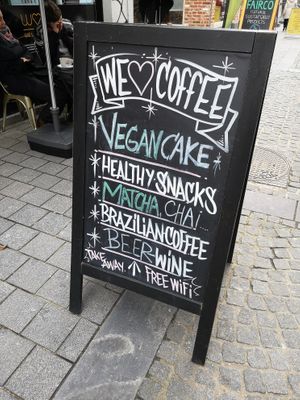 WE ♡ COFFEE
VEGAN CAKE
HEALTHY SNACKS
MATCHA, CHAI...
BRAZILIAN COFFEE
BEER-WINE
TAKE AWAY ↑ FREE WIFI
FAIRCO